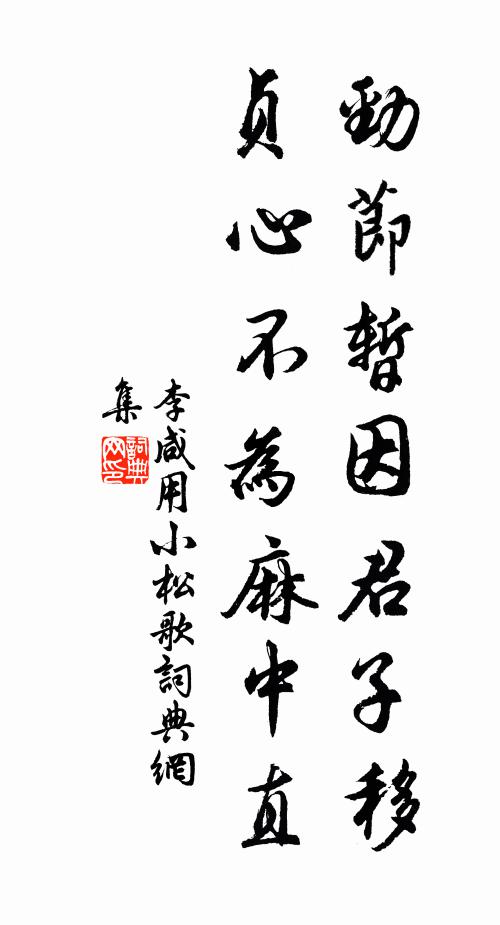 勁節暫因君子移
貞心不為麻中直
李咸用小松歌詞典網
集
詞典網印